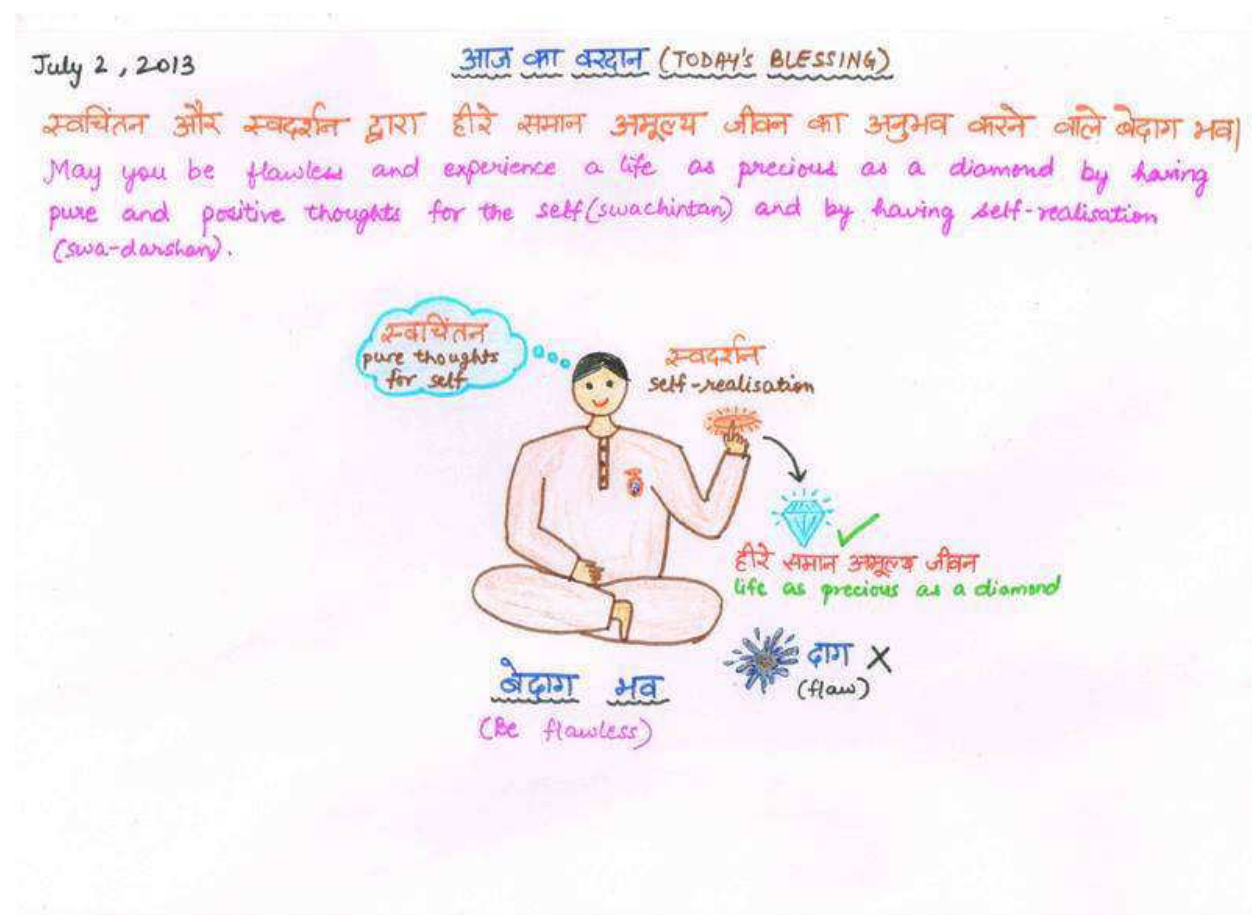 July 2, 2013
आज का वरदान (TODAY'S BLESSING)
स्वचिंतन और स्वदर्शन द्वारा हीरे समान अमूल्य जीवन का अनुभव करने वाले बेदाग भव|
May you be flawless and experience a life as precious as a diamond by having
pure and positive thoughts for the self (swachintan) and by having self-realisation
(swa-darshan).
स्वचिंतन
pure thoughts
for self
स्वदर्शन
self-realisation
हीरे समान अमूल्य जीवन
life as precious as a diamond
दाग X
(flaw)
बेदाग भव
(Be flawless)